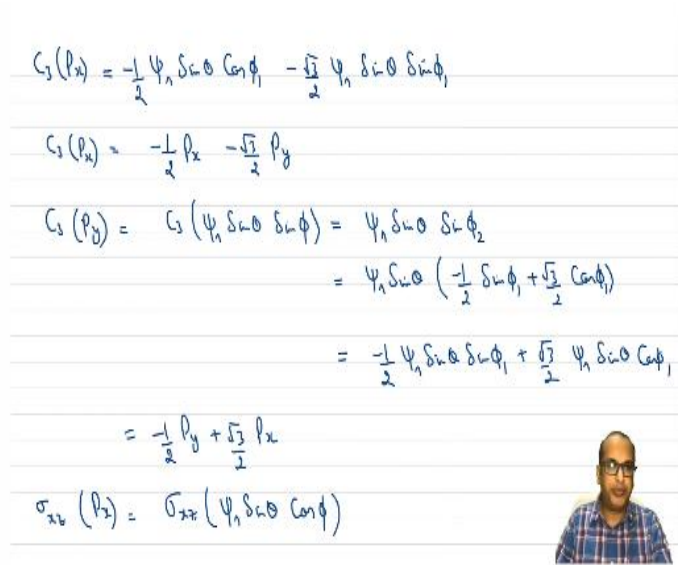 C₃(Pₓ) = -1/2 Ψₙ Sinθ Cosφ₁ - √3/2 Ψₙ Sinθ Sinφ₁
C₃(Pₓ) = -1/2 Pₓ - √3/2 Py
C₃(Py) = C₃(Ψₙ Sinθ Sinφ) = Ψₙ Sinθ Sinφ₂
= Ψₙ Sinθ (-1/2 Sinφ₁ + √3/2 Cosφ₁)
= -1/2 Ψₙ Sinθ Sinφ₁ + √3/2 Ψₙ Sinθ Cosφ₁
= -1/2 Py + √3/2 Px
σxz (Px) = σxz (Ψₙ Sinθ Cosφ)